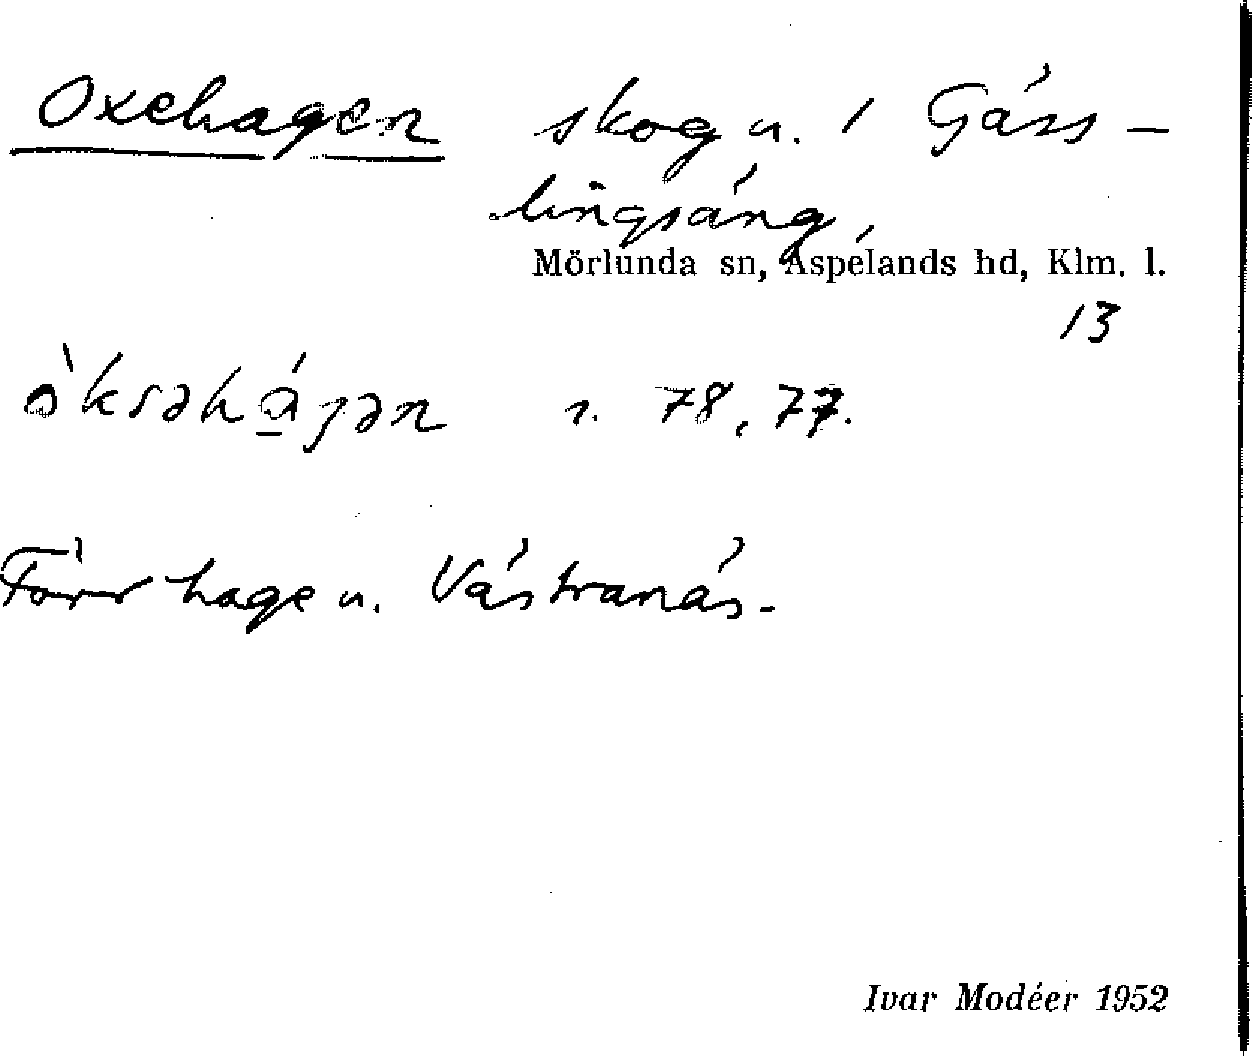 Oxehagen skog u. 1 Gäss-
lingsäng,
Mörlunda sn, Aspelands hd, Klm. l.
13
ò̀ksəhá̱ɟən s. 78, 77.
Förr hage u. Västranäs.
Ivar Modéer 1952